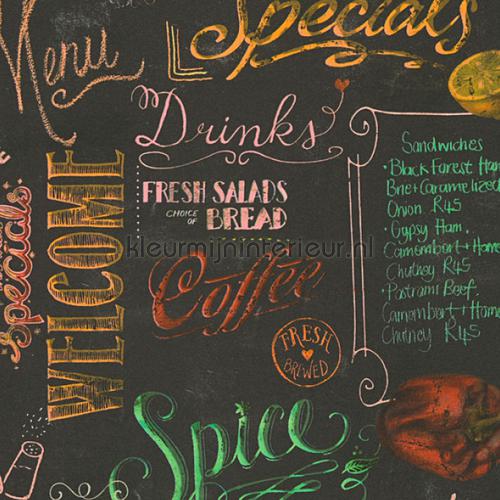 Menu
Specials
Drinks
FRESH SALADS
CHOICE OF BREAD
WELCOME
Specials
kleurmijninterieur.nl
Coffee
FRESH
BREWED
Spice
Sandwiches
• Black Forest Ham
Brie + Caramelized
Onion R45
• Gypsy Ham,
Camembert + Home
Chutney R45
• Pastrami Beef,
Camembert + Home
Chutney R45